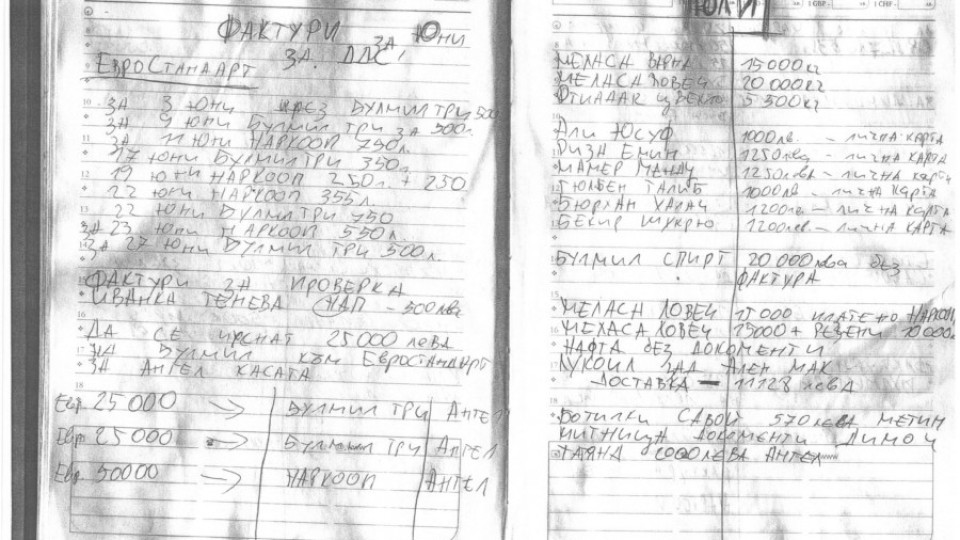 ФАКТУРИ ЗА ЮНИ
ЗА ДДС
ЕвроСтандарт
ЗА 3 ЮНИ чрез БУЛМИЛ ТРИ 500
ЗА 9 ЮНИ БУЛМИЛ ТРИ ЗА 500л.
ЗА 11 ЮНИ НАРКООП 750л.
17 ЮНИ БУЛМИЛ ТРИ 350л.
19 ЮНИ НАРКООП 250л. + 250
22 ЮНИ НАРКООП 355л.
22 ЮНИ БУЛМИЛ ТРИ 750
ЗА 23 ЮНИ НАРКООП 550л.
ЗА 27 ЮНИ БУЛМИЛ ТРИ 500л.
ФАКТУРИ ЗА ПРОВЕРКА
ИВАНКА ТЕНЕВА НАП - 500лв
ДА СЕ 25000 ЛЕВА
НА БУЛМИЛ КЪМ ЕВРОСТАНДАРТ
ЗА АНГЕЛ КАСАТА
Евр. 25000 → БУЛМИЛ ТРИ АНГЕЛ
Евр 25000 → БУЛМИЛ ТРИ АНГЕЛ
Евр 50000 → НАРКООП АНГЕЛ
ЮЛИ
МЕЛАСА ВАРНА 15000кг
МЕЛАСА ЛОВЕЧ 20000кг
5500кг
АЛИ ЮСУФ 1000лв. - ЛИЧНА КАРТА
РИЗА ЕМИН 1250лва - ЛИЧНА КАРТА
1250лва - ЛИЧНА КАРТ
ГЮЛБЕН ТАЛИБ 1000лв - ЛИЧНА КАРТА
БЮРХАН 1200лв - ЛИЧНА КАРТА
БЕКИР ШУКРЮ 1200лев - ЛИЧНА КАРТА
БУЛМИЛ СПИРТ 20000лева без
ФАКТУРА
МЕЛАСА ЛОВЕЧ 15000 ПЛАТЕНО НАРКООП
МЕЛАСА ЛОВЕЧ 15000 + 10000
НАФТА БЕЗ ДОКУМЕНТИ
ЛУКОИЛ ЗАД АЛЕН МАК
ДОСТАВКА - 11128 ЛЕВА
БОТИЛКИ САВОЙ 570 ЛЕВА МЕТИН
МИТНИЦА ДОКУМЕНТИ
1000 ЛЕВА АНГЕЛ